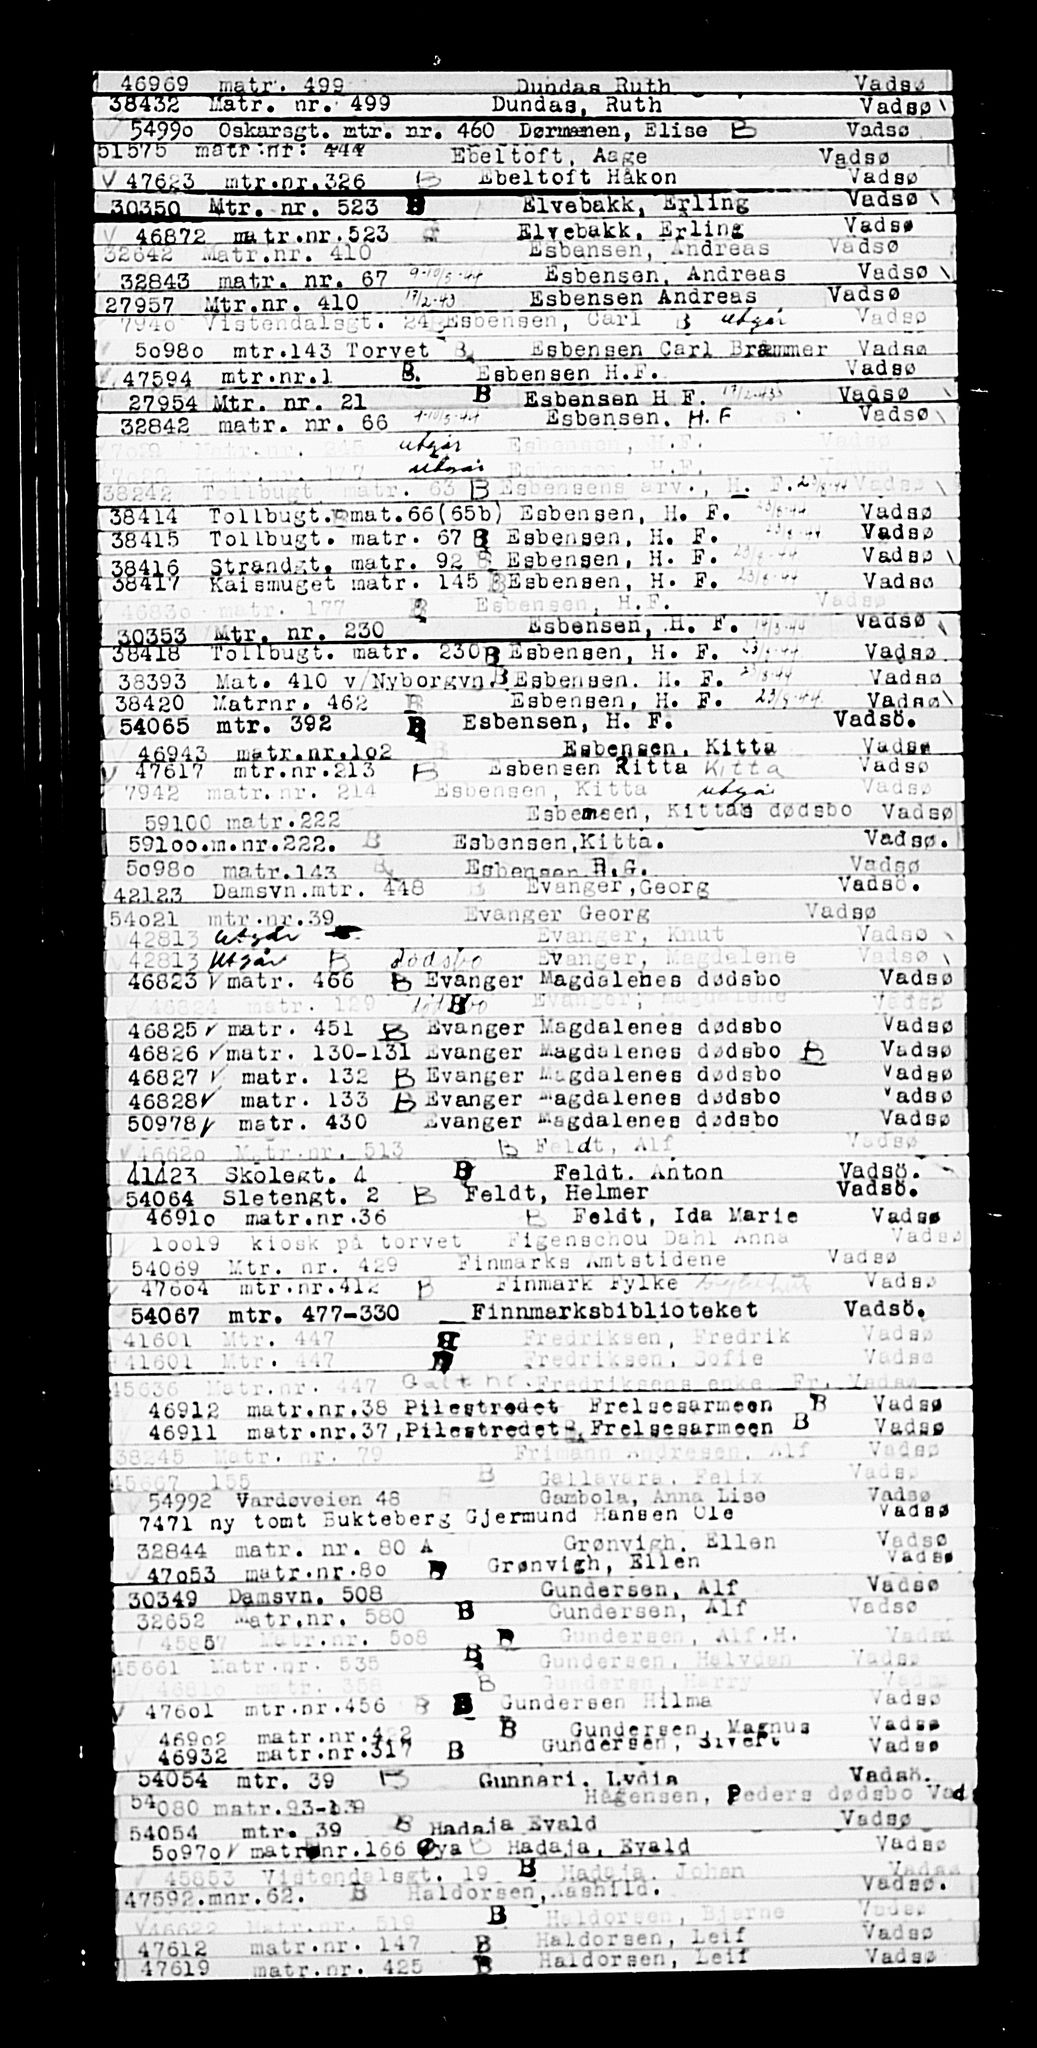 46969 matr. 499 Dundas Ruth Vadsø
38432 Matr. nr. 499 Dundas, Ruth Vadsø
54990 Oskarsgt. mtr. nr. 460 Dørmænen, Elise B Vadsø
51575 matr.nr: 444 Ebeltoft, Aage Vadsø
47623 mtr.nr.326 B Ebeltoft Håkon Vadsø
30350 Mtr. nr. 523 B Elvebakk, Erling Vadsø
46872 matr.nr.523 Elvebakk, Erling Vadsø
32642 Matr.nr. 410 Esbensen, Andreas Vadsø
32843 matr. nr. 67 9-10/5-44 Esbensen, Andreas Vadsø
27957 Mtr.nr. 410 17/2-43 Esbensen Andreas Vadsø
7940 Vistendalsgt. 24 Esbensen, Carl B utgår Vadsø
5o98o mtr.143 Torvet B Esbensen Carl Bræmmer Vadsø
47594 mtr.nr.1 B. Esbensen H.F. Vadsø
27954 Mtr. nr. 21 B Esbensen H F. Vadsø
32842 matr. nr. 66 Esbensen. H. F Vadsø
Matr.nr. 245 utgår Esbensen, H.F.
utgår Esbensen. H.F.
38242 Tollbugt. matr. 63 B Esbensens arv., H. F. 23/8-44 Vadsø
38414 Tollbugt. mat.66(65b) Esbensen, H. F. 23/8-44 Vadsø
38415 Tollbugt. matr. 67 B Esbensen, H. F. 23/8-44 Vadsø
38416 Strandgt. matr. 92 B Esbensen, H. F. 23/8-44 Vadsø
38417 Kaismuget matr. 145 B Esbensen, H. F. 23/8-44 Vadsø
4683o matr. 177 B Esbensen, H.F. Vadsø
30353 Mtr. nr. 230 Esbensen, H. F. Vadsø
38418 Tollbugt. matr. 230 B Esbensen, H. F. 23/8-44 Vadsø
38393 Mat. 410 v/Nyborgvn. B Esbensen. H. F. 23/8-44 Vadsø
38420 Matrnr. 462 B Esbensen, H. F. 23/8-44 Vadsø
54065 mtr. 392 B Esbensen, H. F. Vadsö.
46943 matr.nr.1o2 Esbensen. Kitta Vadsø
47617 mtr.nr.213 B Esbensen Ritta Kitta Vadsø
7942 matr.nr. 214 Esbensen, Kitta utgår Vadsø
59100 matr.222 Esbensen, Kittas dødsbo Vadsø
591oo.m.nr.222. B Esbensen,Kitta. Vadsø.
5o98o matr.143 B Esbensen R.G. Vadsø
42123 Damsvn.mtr. 448 B Evanger,Georg Vadsö.
54o21 mtr.nr.39 Evanger Georg Vadsø
42813 utgår Evanger, Knut Vadsø
42813 utgår B dødsbo Evanger, Magdalene Vadsø
46823 matr. 466 B Evanger Magdalenes dødsbo Vadsø
46824 matr. 129 dødsbo B Evanger, Magdalene Vadsø
46825 matr. 451 B Evanger Magdalenes dødsbo Vadsø
46826 matr. 130-131 Evanger Magdalenes dødsbo B Vadsø
46827 matr. 132 B Evanger Magdalenes dødsbo Vadsø
46828 matr. 133 B Evanger Magdalenes dødsbo Vadsø
50978 matr. 430 Evanger Magdalenes dødsbo Vadsø
4662o Matr.nr. 513 B Feldt, Alf Vadsø
41423 Skolegt. 4 B Feldt. Anton Vadsö.
54064 Sletengt. 2 B Feldt, Helmer Vadsö.
4691o matr.nr.36 B Feldt, Ida Marie Vadsø
1oo19 kiosk på torvet Figenschou Dahl Anna Vadsø
54069 Mtr. nr. 429 Finmarks Amtstidene Vadsø
476o4 mtr.nr.412 B Finmark Fylke Vadsø
54067 mtr. 477-330 Finnmarksbiblioteket Vadsö.
41601 Mtr. 447 B Fredriksen, Fredrik Vadsø
41601 Mtr. 447 Fredriksen, Sofie Vadsø
45636 Matr.nr. 447 Fredriksens enke. Fr. Vadsø
46912 matr.nr.38 Pilestredet Frelsesarmeen B Vadsø
46911 matr.nr.37,Pilestredet Frelsesarmeen B Vadsø
38245 Matr. nr. 79 Frimann Andresen, Alf Vadsø
45667 155 B Gallavara. Felix Vadsø
54992 Vardøveien 48 Gambola, Anna Lise Vadsø
7471 ny tomt Bukteberg Gjermund Hansen Ole Vadsø
32844 matr. nr. 80 A Grønvigh. Ellen Vadsø
47o53 matr.nr.8o B Grønvigh, Ellen Vadsø
30349 Damsvn. 508 Gundersen, Alf Vadsø
32652 Matr.nr. 580 B Gundersen, Alf Vadsø
45857 Matr.nr. 5o8 B Gundersen, Alf.H. Vadsø
45661 Matr.nr. 535 B Gundersen, Halvdan Vadsø
matr. 358 B Gundersen, Harry Vadsø
476o1 mtr.nr.456 B B Gundersen Hilma Vadsø
469o2 matr.nr.422 B Gundersen, Magnus Vadsø
46932 matr.nr.317 B Gundersen, Sivert Vadsø
54054 mtr. 39 B Gunnari. Lydia Vadsö.
54080 matr.93-139 Hagensen, Peders dødsbo Vads
54054 mtr. 39 B Hadaja Evald Vadsø
5o97o matr.nr.166 Øya B Hadaja, Evald Vadsø
45853 Vistendalsgt. 19 B Hadaja. Johan Vadsø
47592.mnr.62. B Haldorsen,Aashild. Vadsø.
46622 Matr.nr. 519 B Haldorsen, Bjarne Vadsø
47612 matr.nr. 147 B Haldorsen, Leif Vadsø
47619 matr.nr. 425 B Haldorsen, Leif Vadsø